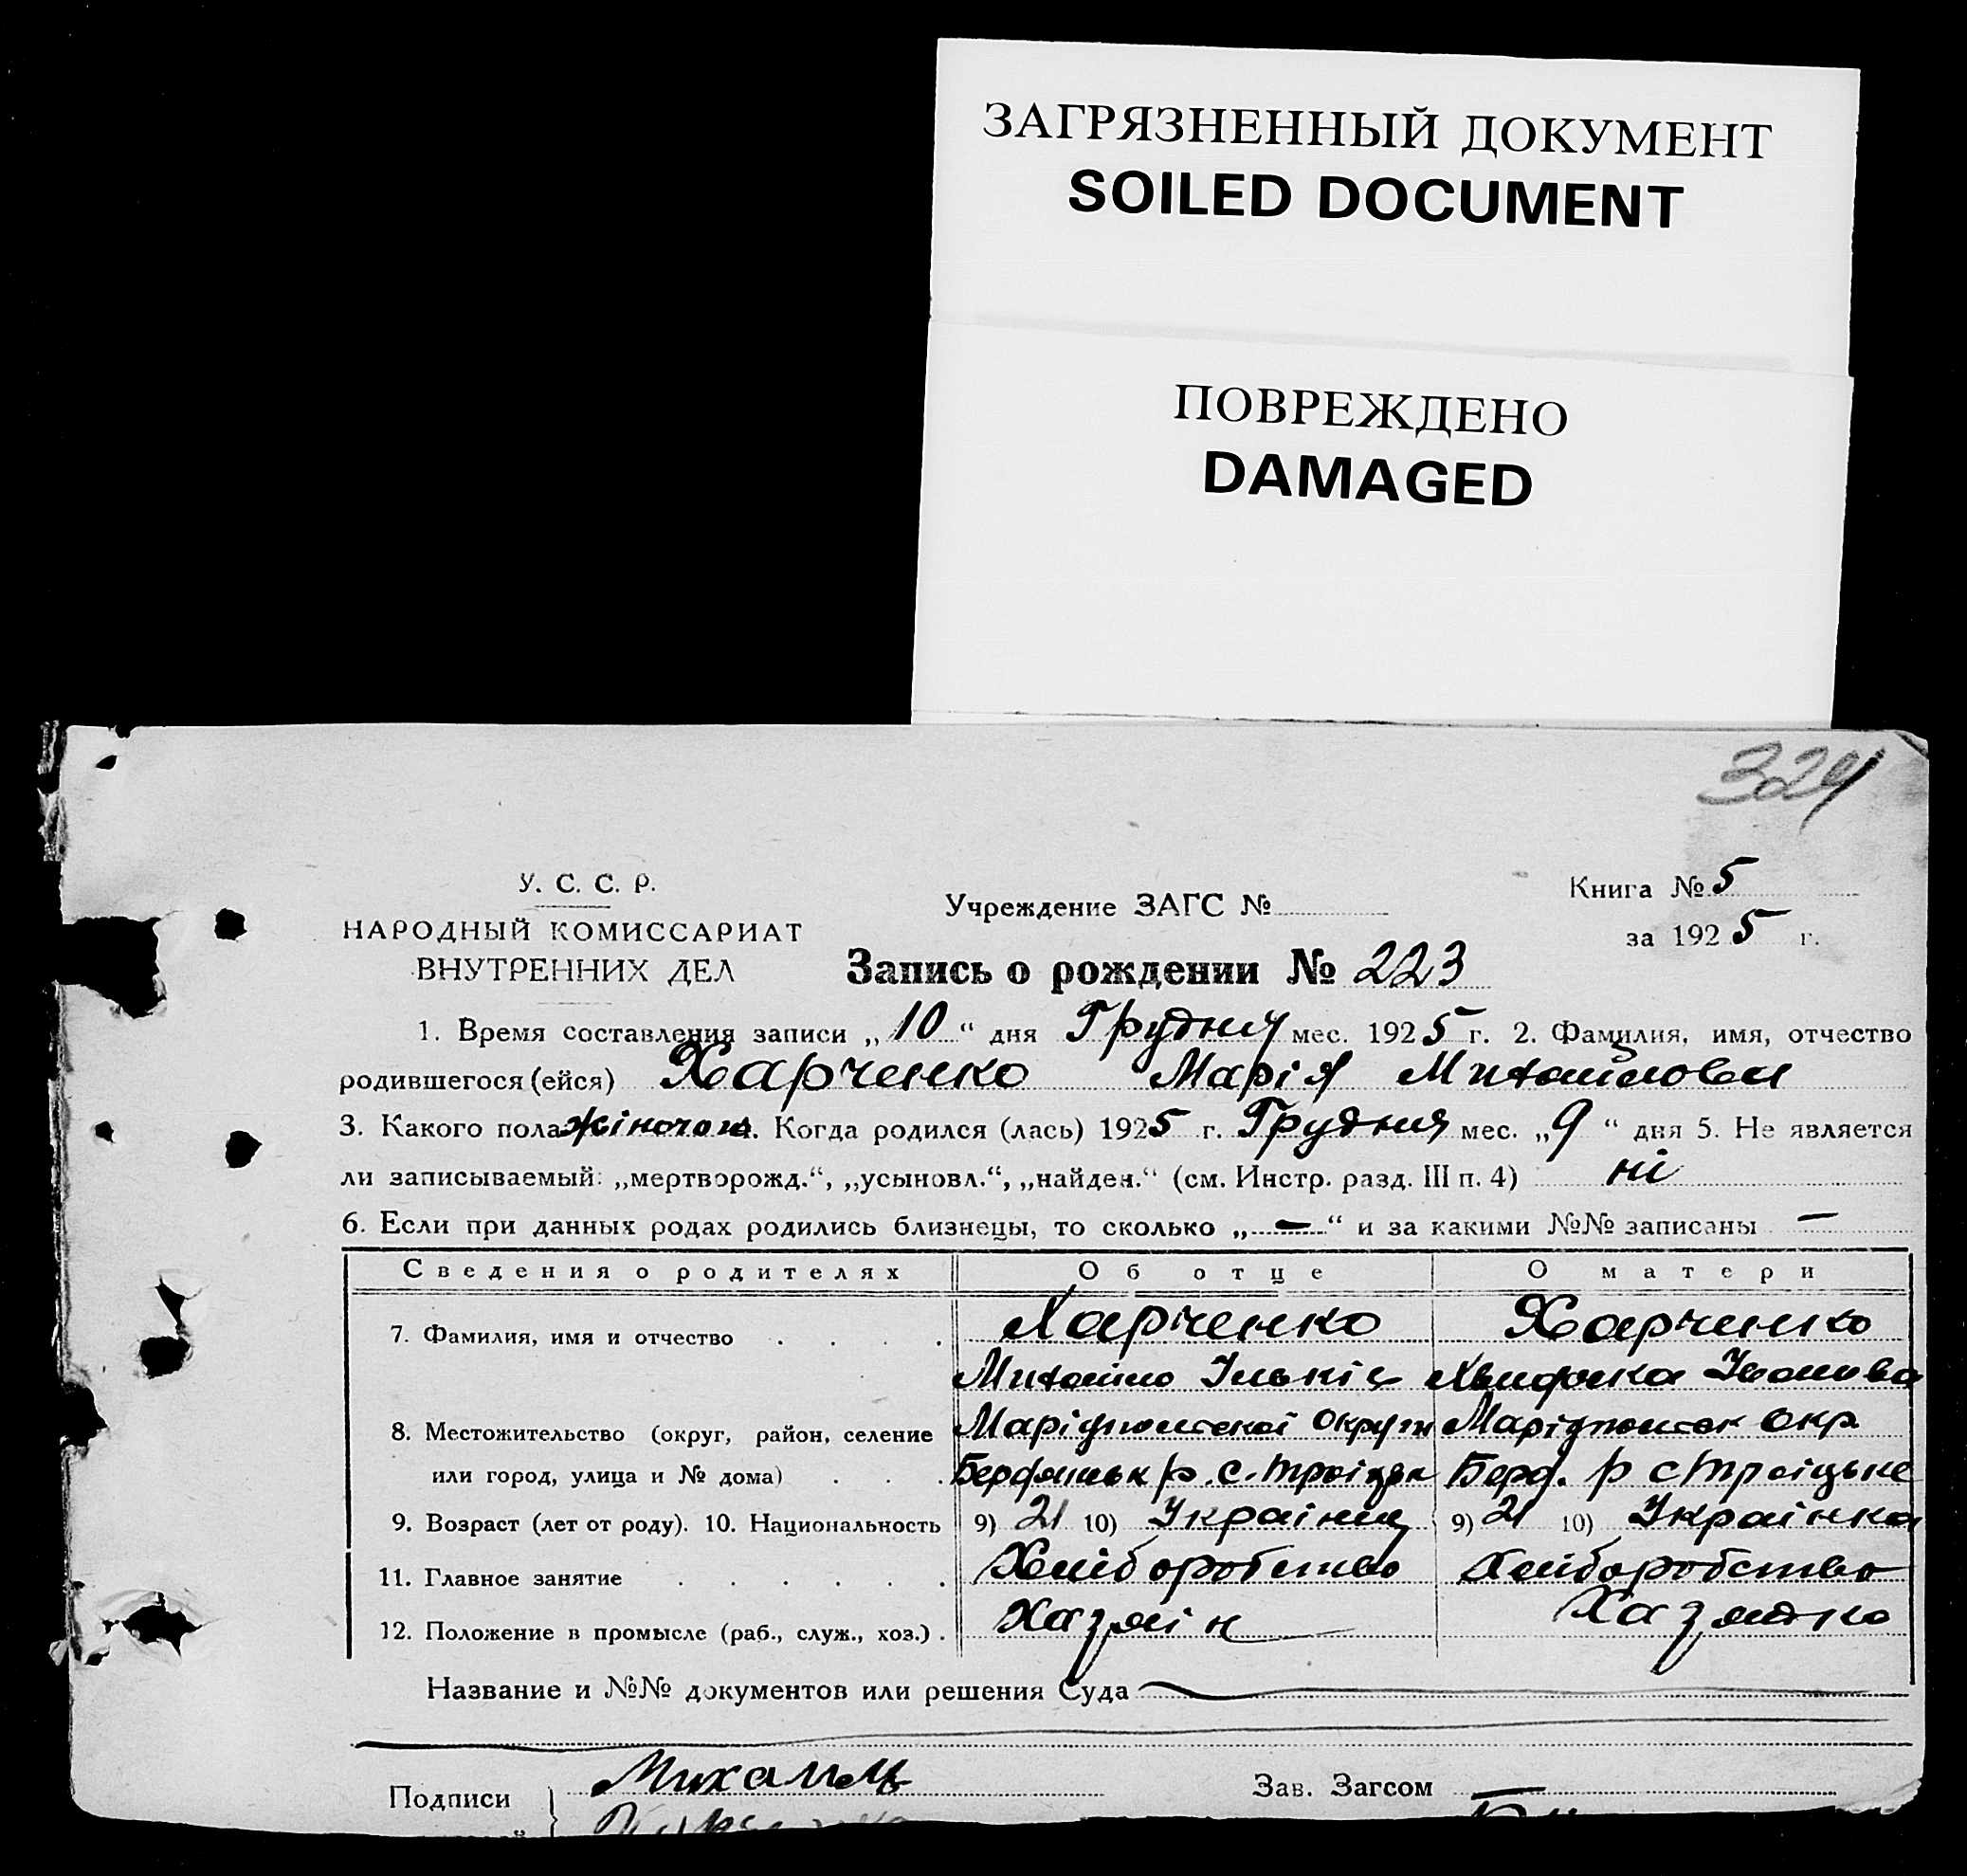 ЗАГРЯЗНЕННЫЙ ДОКУМЕНТ
SOILED DOCUMENT
ПОВРЕЖДЕНО
DAMAGED
У. С. С. Р.
НАРОДНЫЙ КОМИССАРИАТ
ВНУТРЕННИХ ДЕЛ
Учреждение ЗАГС №
Книга № 5
за 1925 г.
Запись о рождении № 223
1. Время составления записи „10“ дня Грудня мес. 1925 г. 2. Фамилия, имя, отчество
родившегося (ейся) Харченко Марія
3. Какого пола жіночого 4. Когда родился (лась) 1925 г. Грудня мес. „9“ дня 5. Не является
ли записываемый: „мертворожд.“, „усыновл.“, „найден.“ (см. Инстр. разд. III п. 4) ні
6. Если при данных родах родились близнецы, то сколько „—“ и за какими №№ записаны —
Сведения о родителях Об отце О матери
7. Фамилия, имя и отчество . . . . Харченко Харченко
Михайло Ільків Іванова
8. Местожительство (округ, район, селение Округи Окр.
или город, улица и № дома) . . . р. с. Берд. р с Троїцьке
9. Возраст (лет от роду). 10. Национальность 9) 21 10) Українец 9) 21 10) Українка
11. Главное занятие . . . . . . Хліборобство Хліборобство
12. Положение в промысле (раб., служ., хоз.) . Хазяін Хазяйка
Название и №№ документов или решения Суда
Подписи Зав. Загсом